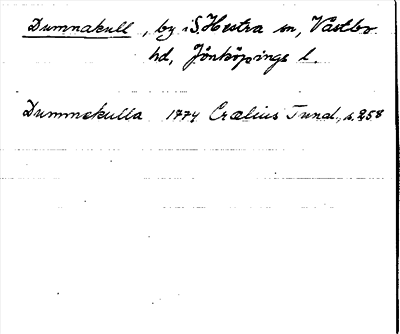 Dumnakull, by i S. Hestra sn, Västbo
hd, Jönköpings l.
Dummekulla 1774 Crælius Tund., s. 258